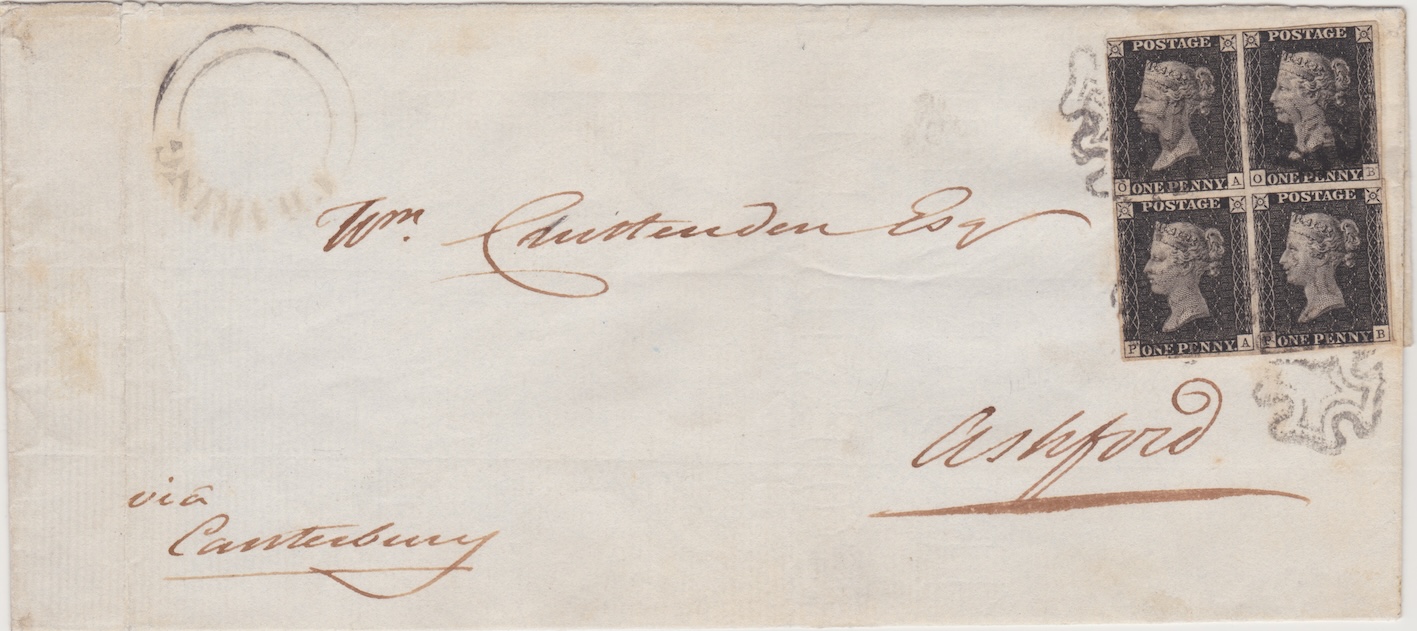 POSTAGE POSTAGE
O ONE PENNY A O ONE PENNY B
POSTAGE POSTAGE
P ONE PENNY A P ONE PENNY B
Wm. Chittenden Esq
Ashford
via
Canterbury